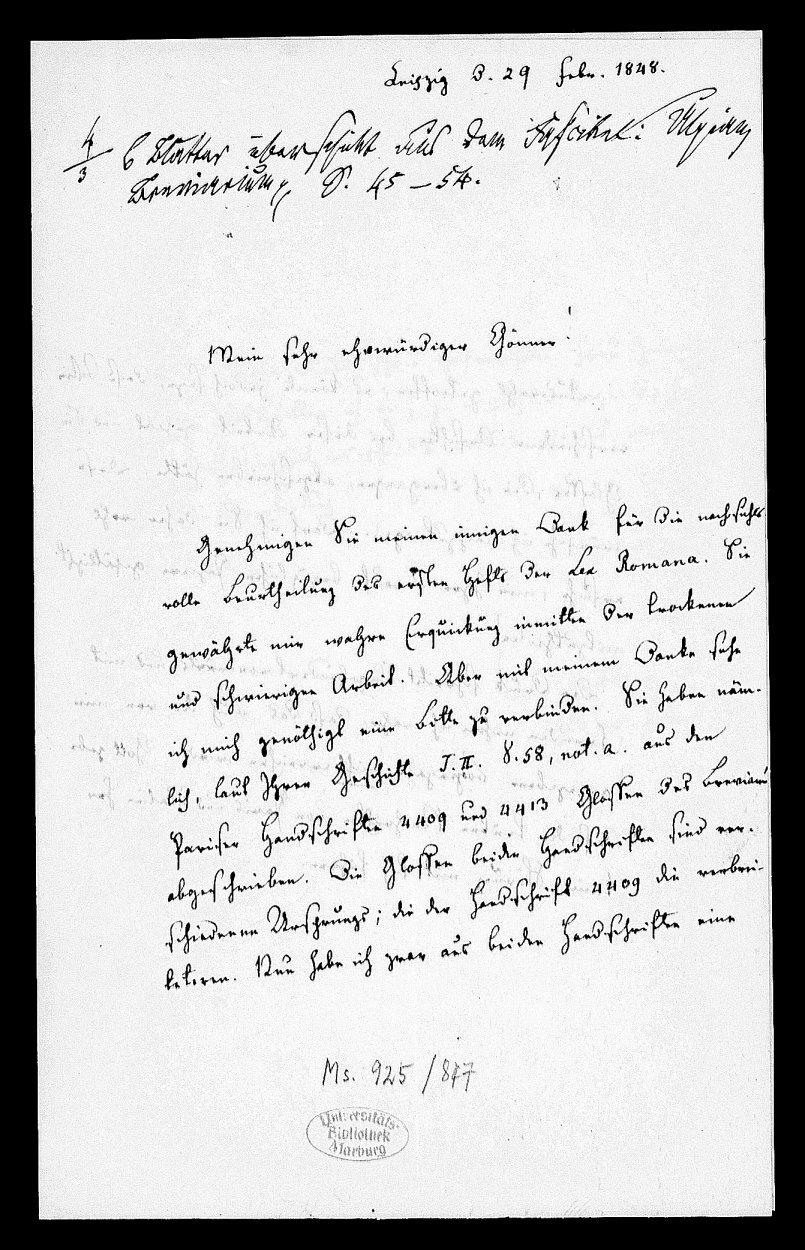 Leipzig d. 29 Febr. 1848.
4/3 6 Blätter überschickt aus dem Fascikel: Ulpian,
Breviarium, S. 45–54.
Mein sehr ehrwürdiger Gönner!
Genehmigen Sie meinen innigen Dank für die nachsichts-
volle Beurtheilung des ersten Hefts der Lex Romana. Sie
gewährte mir wahre Erquickung inmitten der trockenen
und schwierigen Arbeit. Aber mit meinem Danke sehe
ich mich genöthigt eine Bitte zu verbinden. Sie haben näm-
lich, laut Ihrer Geschichte T. II. S. 58, not. a. aus den
Pariser Handschriften 4409 und 4413 Glossen des Breviars
abgeschrieben. Die Glossen beider Handschriften sind ver-
schiedenen Ursprungs; die der Handschrift 4409 die verbrei-
teteren. Nun habe ich zwar aus beiden Handschriften eine
Ms. 925/847
Universitäts-
Bibliothek
Marburg